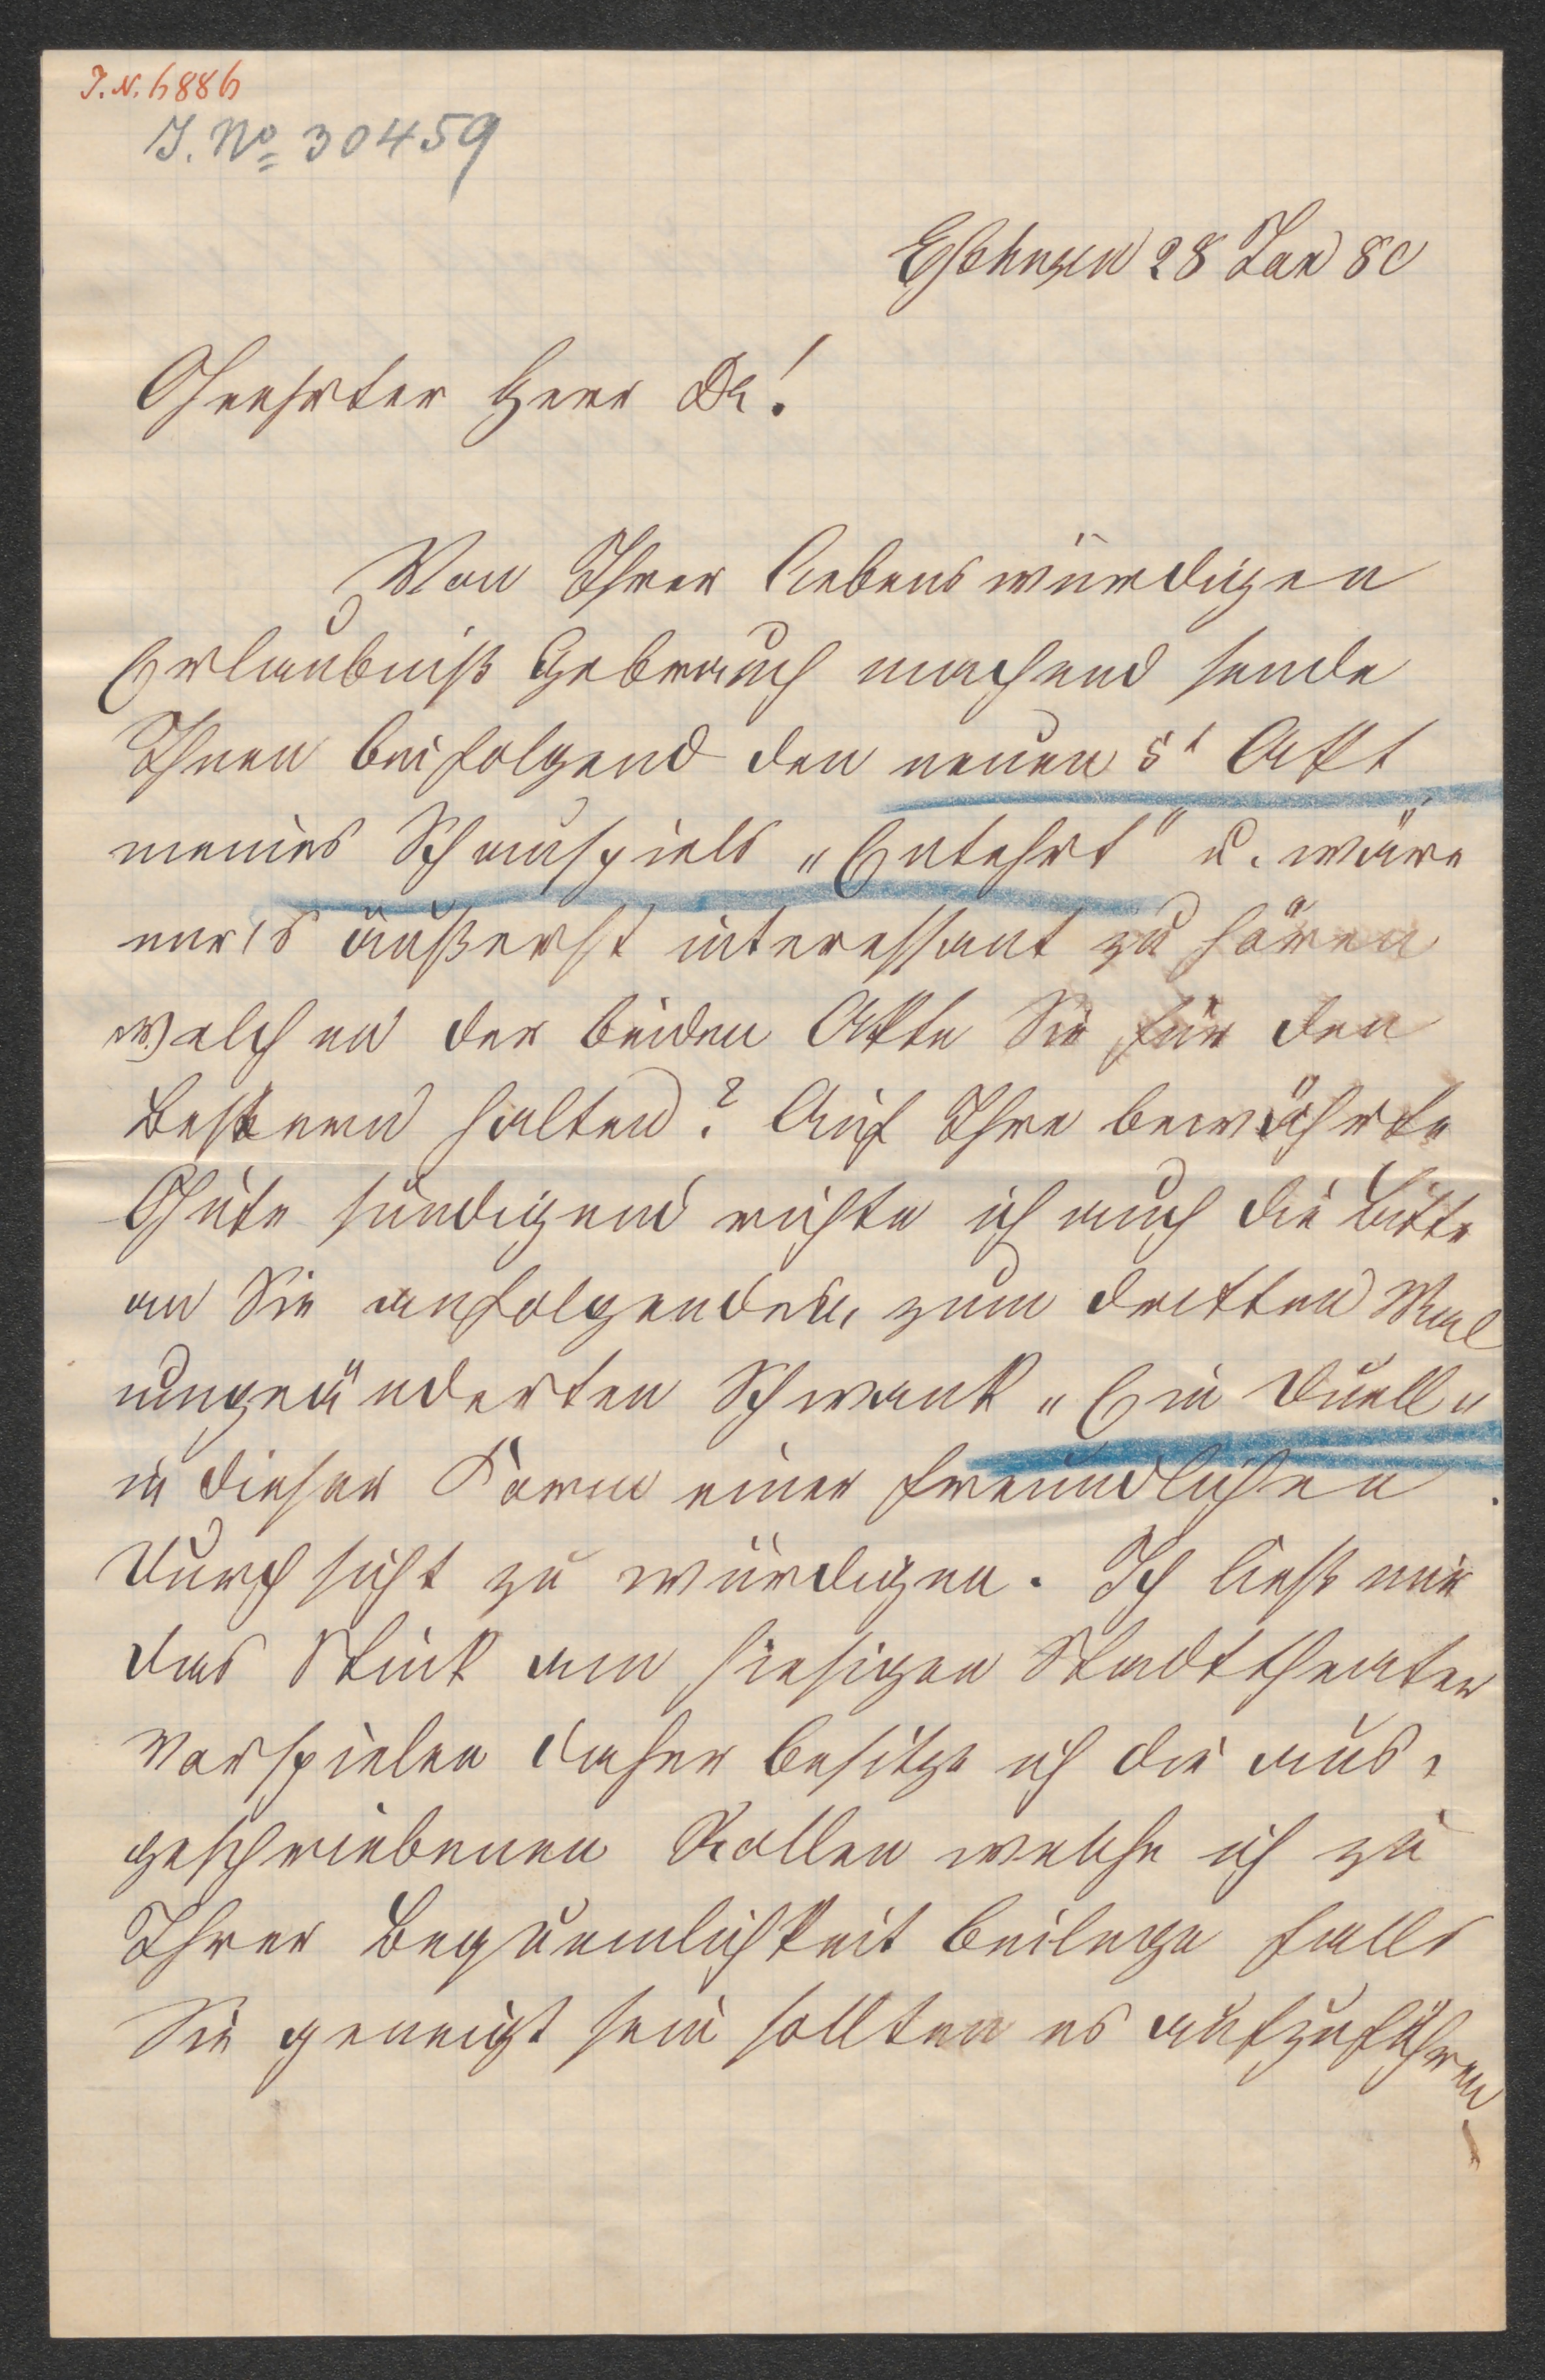 J. N. 6886
J. No 30459
28 Jan 80
Geehrter Herr Dr!
Von Ihrer liebenswürdigen
Erlaubniß Gebrauch machend sende
Ihnen beifolgend den neuen 5t Akt
meines Schauspiels „Entehrt“ u. wäre
mir's äußerst interessant zu hören
welchen der beiden Akte Sie für den
Bessern halten? Auf Ihre bewährte
Güte sündigend richte ich auch die Bitte
an Sie anfolgenden, zum dritten Mal
umgeänderten Schwank „Ein Duell„
in dieser Form einer freundlichen
Durchsicht zu würdigen. Ich ließ mir
das Stück am hiesigen Stadttheater
vorspielen daher besitze ich die aus-
geschriebenen Rollen welche ich zu
Ihrer Bequemlichkeit beilege falls
Sie geneigt sein sollten es aufzuführen